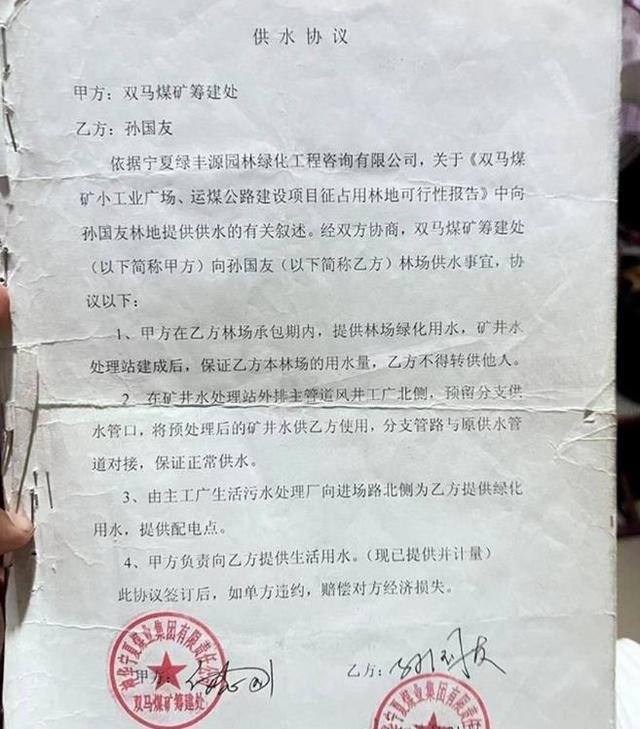 供水协议
甲方：双马煤矿筹建处
乙方：孙国友
依据宁夏绿丰源园林绿化工程咨询有限公司，关于《双马煤
矿小工业广场、运煤公路建设项目征占用林地可行性报告》中向
孙国友林地提供供水的有关叙述。经双方协商，双马煤矿筹建处
（以下简称甲方）向孙国友（以下简称乙方）林场供水事宜，协
议以下：
1、甲方在乙方林场承包期内，提供林场绿化用水，矿井水
处理站建成后，保证乙方本林场的用水量，乙方不得转供他人。
2、在矿井水处理站外排主管道风井工广北侧，预留分支供
水管口，将预处理后的矿井水供乙方使用，分支管路与原供水管
道对接，保证正常供水。
3、由主工广生活污水处理厂向进场路北侧为乙方提供绿化
用水，提供配电点。
4、甲方负责向乙方提供生活用水。（现已提供并计量）
此协议签订后，如单方违约，赔偿对方经济损失。
神华宁夏煤业集团有限责任
甲方：
双马煤矿筹建处
乙方：孙国友
神华宁夏煤业集团有限责任